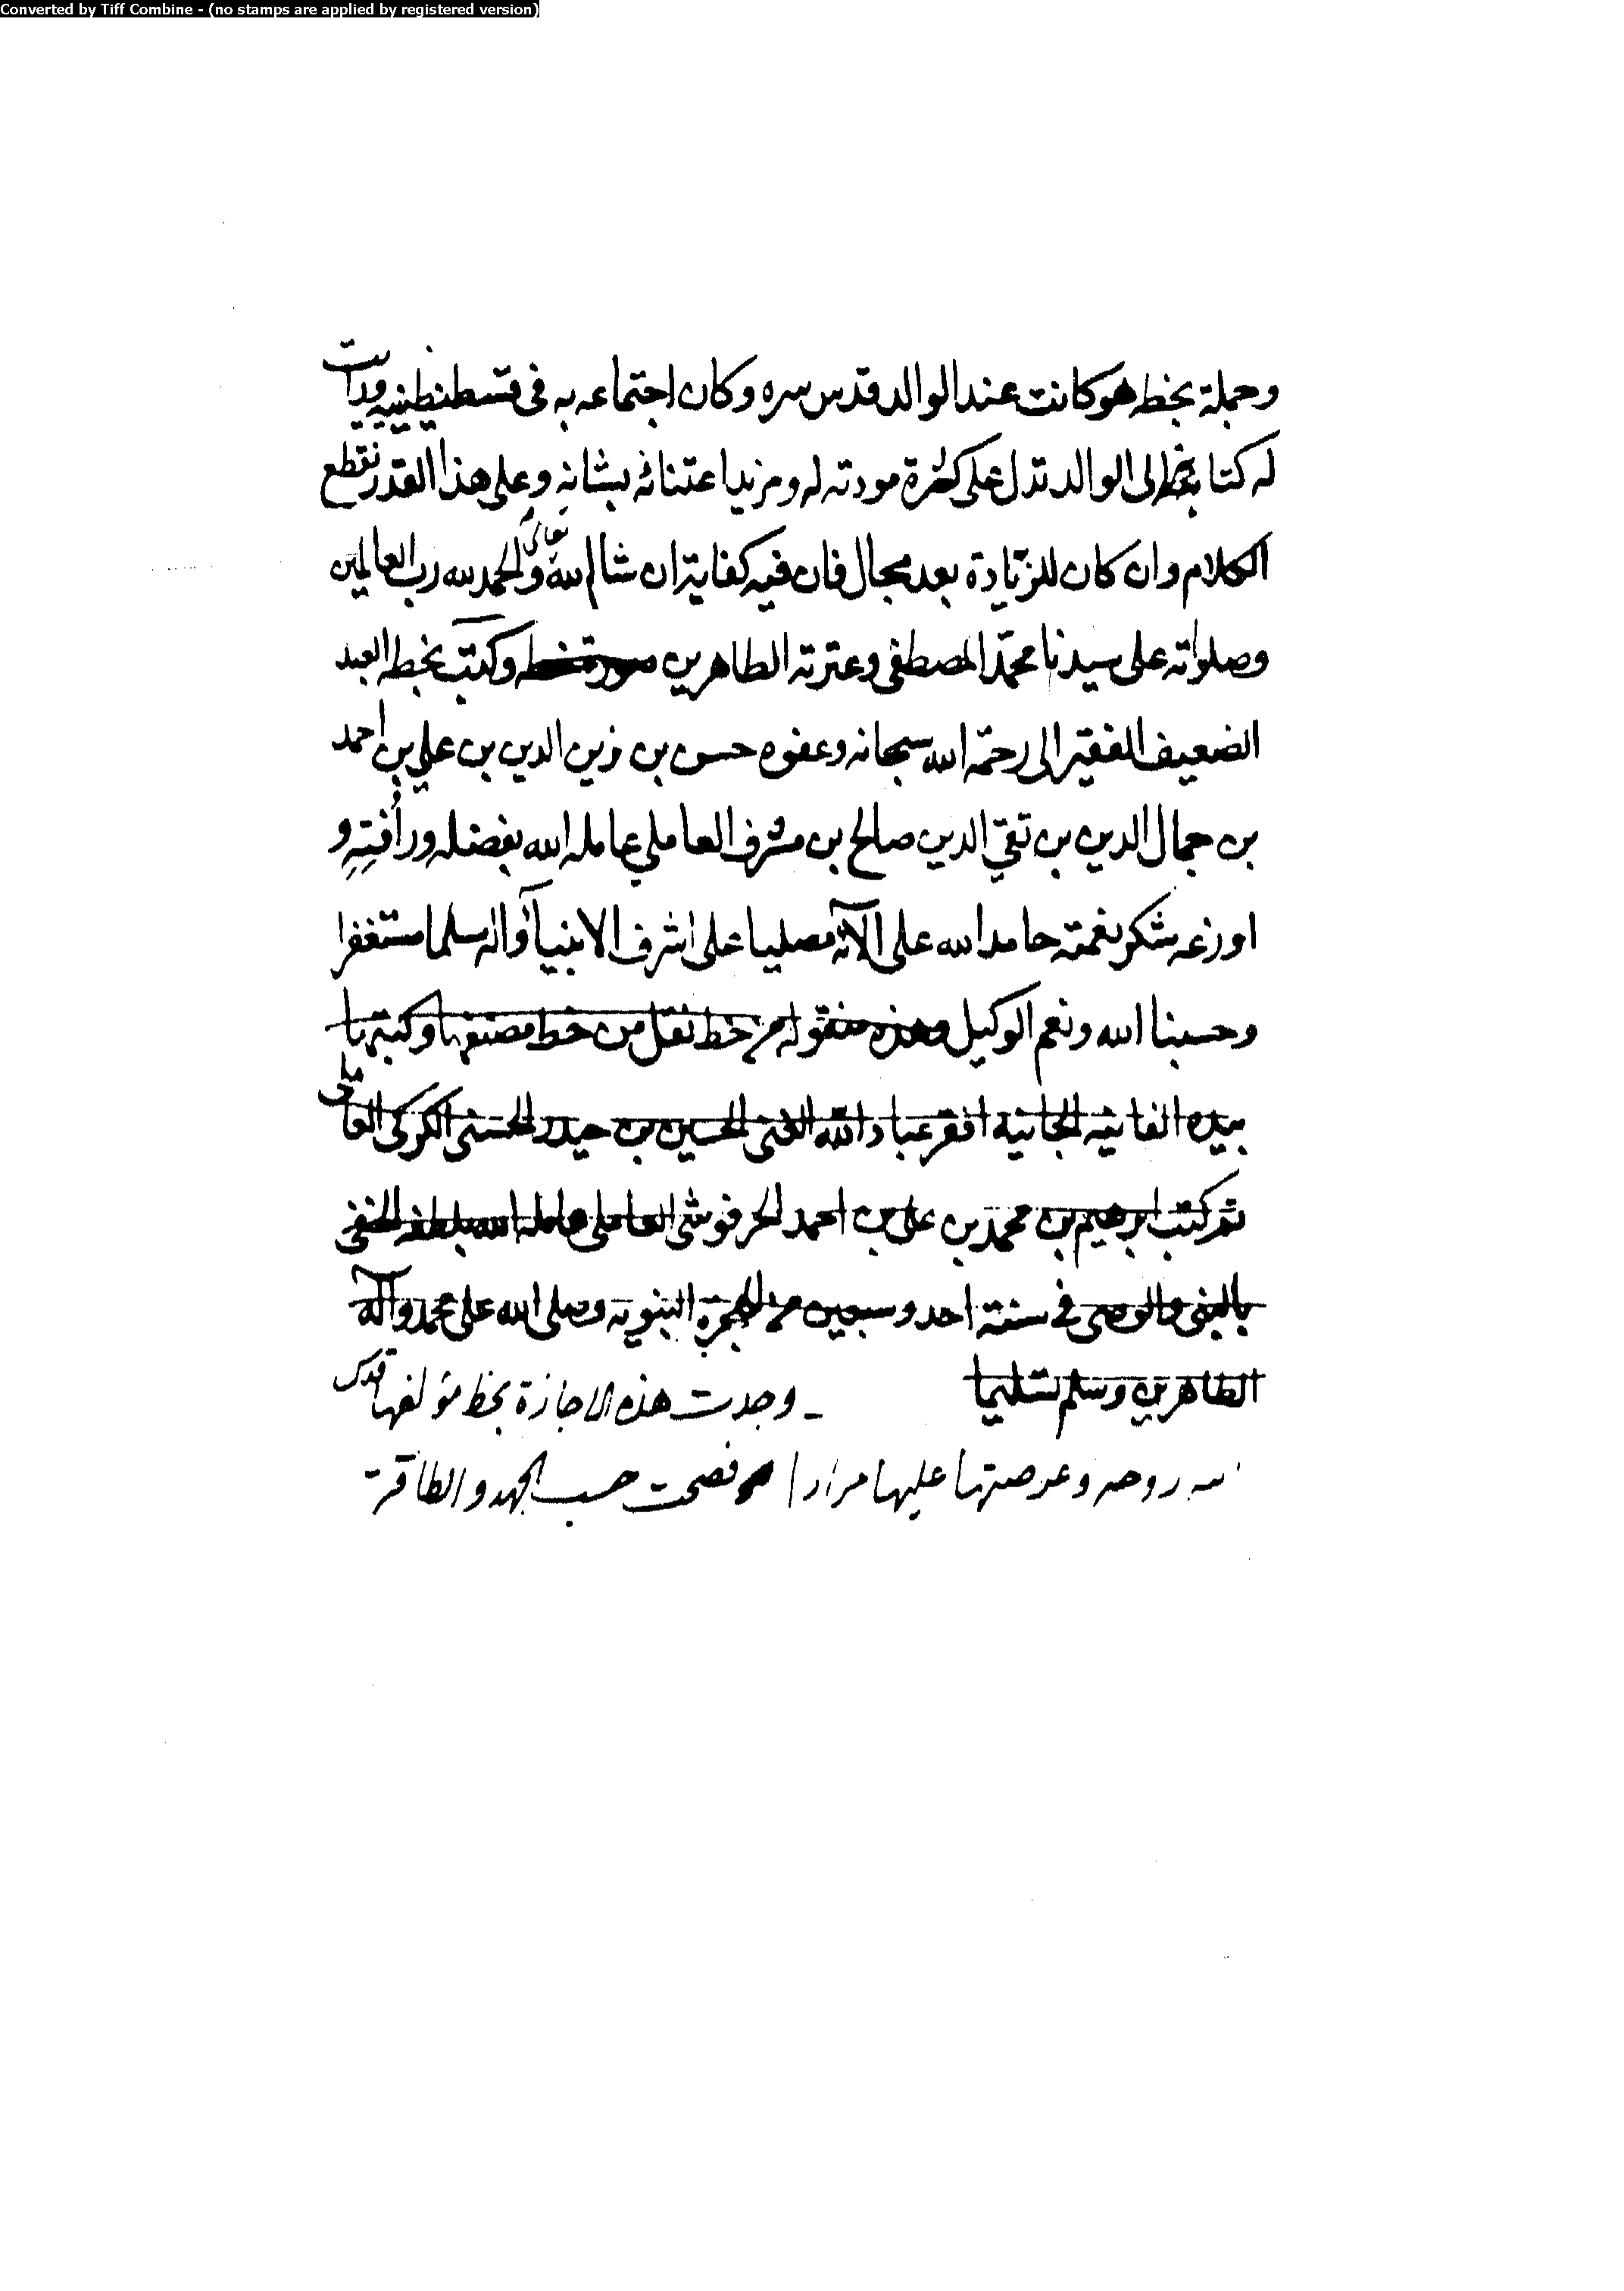 Converted by Tiff Combine - (no stamps are applied by registered version)
وجملة بخطه هو كانت عند الوالد قدس سره وكان اجتماعه به فى قسطنطينيه ورأيت
له كتابة بخطه الى الوالد تدل على كثرة مودته له ومزيد اعتنائه بشانه وعلى هذا القدر نقطع
الكلام وان كان للزيادة بعد مجال فان فيه كفاية ان شاء الله تعالى والحمد لله رب العالمين
وصلواته على سيدنا محمد المصطفى وعترته الطاهرين صورة خطه وكتب بخطه العبد
الضعيف الفقير الى رحمة الله سبحانه وعفوه حسن بن زين الدين بن علي بن احمد
بن جمال الدين بن تقي الدين صالح بن مشرف العاملي عامله الله بفضله ورأفته و
اوزعه شكر نعمته حامدا لله على آلائه مصليا على اشرف الانبيآء وآله مسلما مستغفرا
وحسبنا الله ونعم الوكيل وهذه منقولة من خط نقل من خط مصنفها وكتبتها
بيده الفانية الجانية افقر عباد الله الغنى الحسين بن حيدر الحسنى الكركى العاملى
ثم كتب ابرهيم بن محمد بن على بن احمد الحرفوشى العاملى عامله الله بلطفه الخفى
بالنبى والوصى فى سنة احد وسبعين من الهجرة النبوية وصلى الله على محمد وآله
الطاهرين وسلم تسليما وجدت هذه الاجازة بخط مؤلفها قدس
الله روحه وعرضتها عليها مرارا فصحت حسب الجهد والطاقة